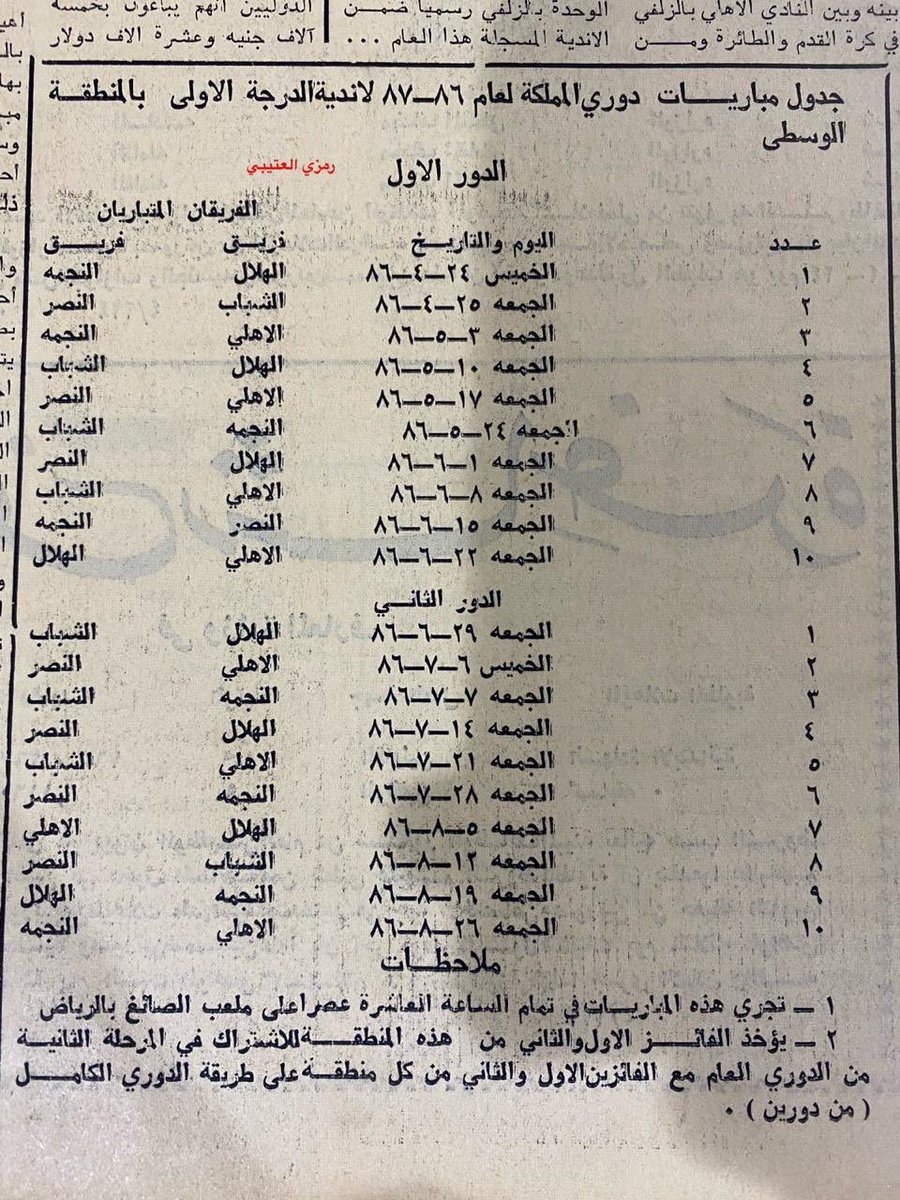 بينه وبين النادي الاهلي بالزلفي
في كرة القدم والطائرة ومن
الوحدة بالزلفي رسميا ضمن
الاندية المسجلة هذا العام ...
الدوليين انهم يباعون بخمسه
آلاف جنيه وعشرة الاف دولار
جدول مباريات دوري المملكة لعام ٨٦-٨٧ لاندية الدرجة الاولى بالمنطقة
الوسطى
رمزي العتيبي
الدور الاول
الفريقان المتباريان
عدد اليوم والتاريخ فريق فريق
١ الخميس ٢٤-٤-٨٦ الهلال النجمه
٢ الجمعه ٢٥-٤-٨٦ الشباب النصر
٣ الجمعه ٣-٥-٨٦ الاهلي النجمه
٤ الجمعه ١٠-٥-٨٦ الهلال الشباب
٥ الجمعه ١٧-٥-٨٦ الاهلي النصر
٦ الجمعه ٢٤-٥-٨٦ النجمه الشباب
٧ الجمعه ١-٦-٨٦ الهلال النصر
٨ الجمعه ٨-٦-٨٦ الاهلي الشباب
٩ الجمعه ١٥-٦-٨٦ النصر النجمه
١٠ الجمعه ٢٢-٦-٨٦ الاهلي الهلال
الدور الثاني
١ الجمعه ٢٩-٦-٨٦ الهلال الشباب
٢ الخميس ٦-٧-٨٦ الاهلي النصر
٣ الجمعه ٧-٧-٨٦ النجمه الشباب
٤ الجمعه ١٤-٧-٨٦ الهلال النصر
٥ الجمعه ٢١-٧-٨٦ الاهلي الشباب
٦ الجمعه ٢٨-٧-٨٦ النجمه النصر
٧ الجمعه ٥-٨-٨٦ الهلال الاهلي
٨ الجمعه ١٢-٨-٨٦ الشباب النصر
٩ الجمعه ١٩-٨-٨٦ النجمه الهلال
١٠ الجمعه ٢٦-٨-٨٦ الاهلي النجمه
ملاحظات
١ - تجري هذه المباريات في تمام الساعة العاشرة عصرا على ملعب الصائغ بالرياض
٢ - يؤخذ الفائز الاول والثاني من هذه المنطقة للاشتراك في المرحلة الثانية
من الدوري العام مع الفائزين الاول والثاني من كل منطقة على طريقة الدوري الكامل
( من دورين ) .